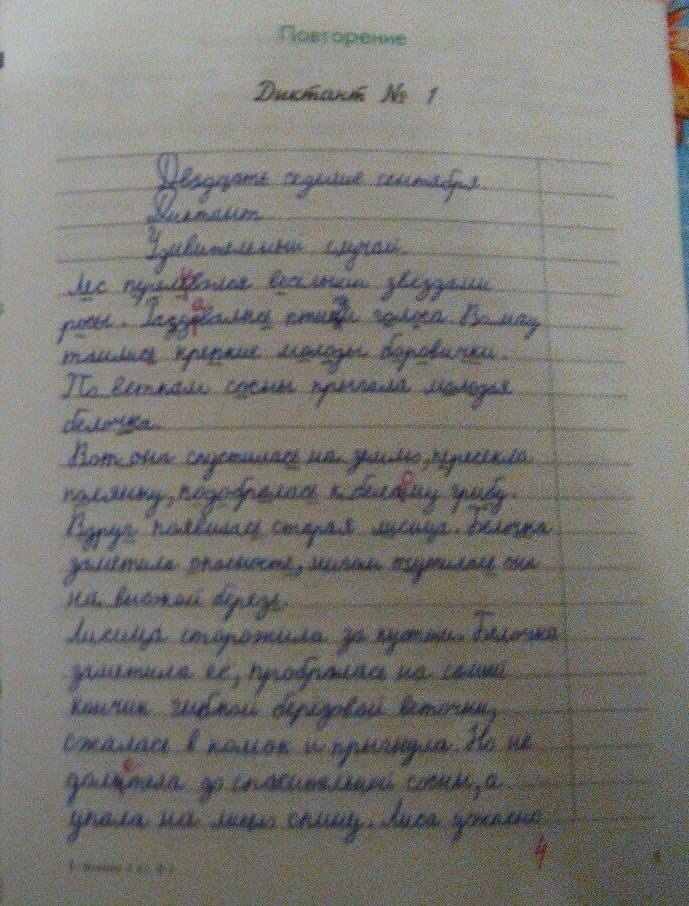 Повторение
Диктант № 1
Двадцать седьмое сентября
Диктант
Удивительный случай
Лес переливался весёлыми звездами
росы. Раздавались птичьи голоса. Во мху
таились крепкие молоды боровички.
По веткам сосны прыгала молодая
белочка.
Вот она спустилась на землю, пересекла
полянку, подобралась к белому грибу.
Вдруг появилась старая лисица. Белочка
заметила опасность, мигом очутилась она
на высокой берёзе.
Лисица сторожила за кустом. Белочка
заметила её, пробралась на самый
кончик гибкой берёзовой веточки,
сжалась в комок и прыгнула. Но не
долетела до спасительной сосны, а
упала на лисью спину. Лиса ужасно
4